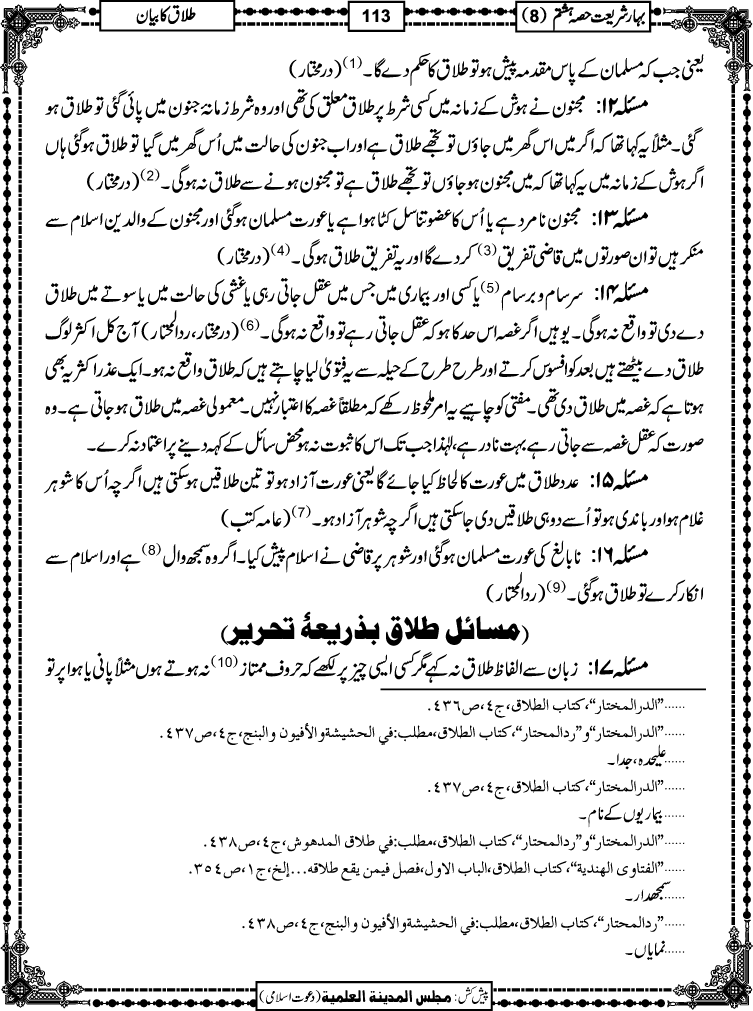 بہار شریعت حصہ ہشتم (8)
113
طلاق کا بیان
یعنی جب کہ مسلمان کے پاس مقدمہ پیش ہو تو طلاق کا حکم دے گا۔ (1) (درمختار)
مسئلہ ۱۲: مجنون نے ہوش کے زمانہ میں کسی شرط پر طلاق معلق کی تھی اور وہ شرط زمانۂ جنون میں پائی گئی تو طلاق ہو
گئی۔ مثلاً یہ کہا تھا کہ اگر میں اس گھر میں جاؤں تو تجھے طلاق ہے اور اب جنون کی حالت میں اُس گھر میں گیا تو طلاق ہوگئی ہاں
اگر ہوش کے زمانہ میں یہ کہا تھا کہ میں مجنون ہو جاؤں تو تجھے طلاق ہے تو مجنون ہونے سے طلاق نہ ہوگی۔ (2) (درمختار)
مسئلہ ۱۳: مجنون نامرد ہے یا اُس کا عضو تناسل کٹا ہوا ہے یا عورت مسلمان ہوگئی اور مجنون کے والدین اسلام سے
منکر ہیں تو ان صورتوں میں قاضی تفریق (3) کر دے گا اور یہ تفریق طلاق ہوگی۔ (4) (درمختار)
مسئلہ ۱۴: سرسام و برسام (5) یا کسی اور بیماری میں جس میں عقل جاتی رہی یا غشی کی حالت میں یا سوتے میں طلاق
دے دی تو واقع نہ ہوگی۔ یوہیں اگر غصہ اس حد کا ہو کہ عقل جاتی رہے تو واقع نہ ہوگی۔ (6) (درمختار، ردالمحتار) آج کل اکثر لوگ
طلاق دے بیٹھتے ہیں بعد کو افسوس کرتے اور طرح طرح کے حیلہ سے یہ فتویٰ لیا چاہتے ہیں کہ طلاق واقع نہ ہو۔ ایک عذر اکثر یہ بھی
ہوتا ہے کہ غصہ میں طلاق دی تھی۔ مفتی کو چاہیے یہ امر ملحوظ رکھے کہ مطلقاً غصہ کا اعتبار نہیں۔ معمولی غصہ میں طلاق ہو جاتی ہے۔ وہ
صورت کہ عقل غصہ سے جاتی رہے بہت نادر ہے، لہٰذا جب تک اس کا ثبوت نہ ہو محض سائل کے کہہ دینے پر اعتماد نہ کرے۔
مسئلہ ۱۵: عدد طلاق میں عورت کا لحاظ کیا جائے گا یعنی عورت آزاد ہو تو تین طلاقیں ہوسکتی ہیں اگرچہ اُس کا شوہر
غلام ہو اور باندی ہو تو اُسے دو ہی طلاقیں دی جاسکتی ہیں اگرچہ شوہر آزاد ہو۔ (7) (عامہ کتب)
مسئلہ ۱۶: نابالغ کی عورت مسلمان ہوگئی اور شوہر پر قاضی نے اسلام پیش کیا۔ اگر وہ سمجھ وال (8) ہے اور اسلام سے
انکار کرے تو طلاق ہوگئی۔ (9) (ردالمحتار)
(مسائل طلاق بذریعۂ تحریر)
مسئلہ ۱۷: زبان سے الفاظ طلاق نہ کہے مگر کسی ایسی چیز پر لکھے کہ حروف ممتاز (10) نہ ہوتے ہوں مثلاً پانی یا ہوا پر تو
......”الدرالمختار“، کتاب الطلاق، ج٤، ص٤٣٦.
......”الدرالمختار“و”ردالمحتار“، کتاب الطلاق، مطلب: في الحشيشة والأفيون والبنج، ج٤، ص٤٣٧.
......علیحدہ، جدا۔
......”الدرالمختار“، کتاب الطلاق، ج٤، ص٤٣٧.
......بیماریوں کے نام۔
......”الدرالمختار“و”ردالمحتار“، کتاب الطلاق، مطلب: في طلاق المدهوش، ج٤، ص٤٣٨.
......”الفتاوى الهندية“، کتاب الطلاق، الباب الاول، فصل فيمن يقع طلاقه...إلخ، ج١، ص٣٥٤.
......سمجھدار۔
......”ردالمحتار“، کتاب الطلاق، مطلب: في الحشيشة والأفيون والبنج، ج٤، ص٤٣٨.
......نمایاں۔
پیش کش: مجلس المدینة العلمیة (دعوت اسلامی)